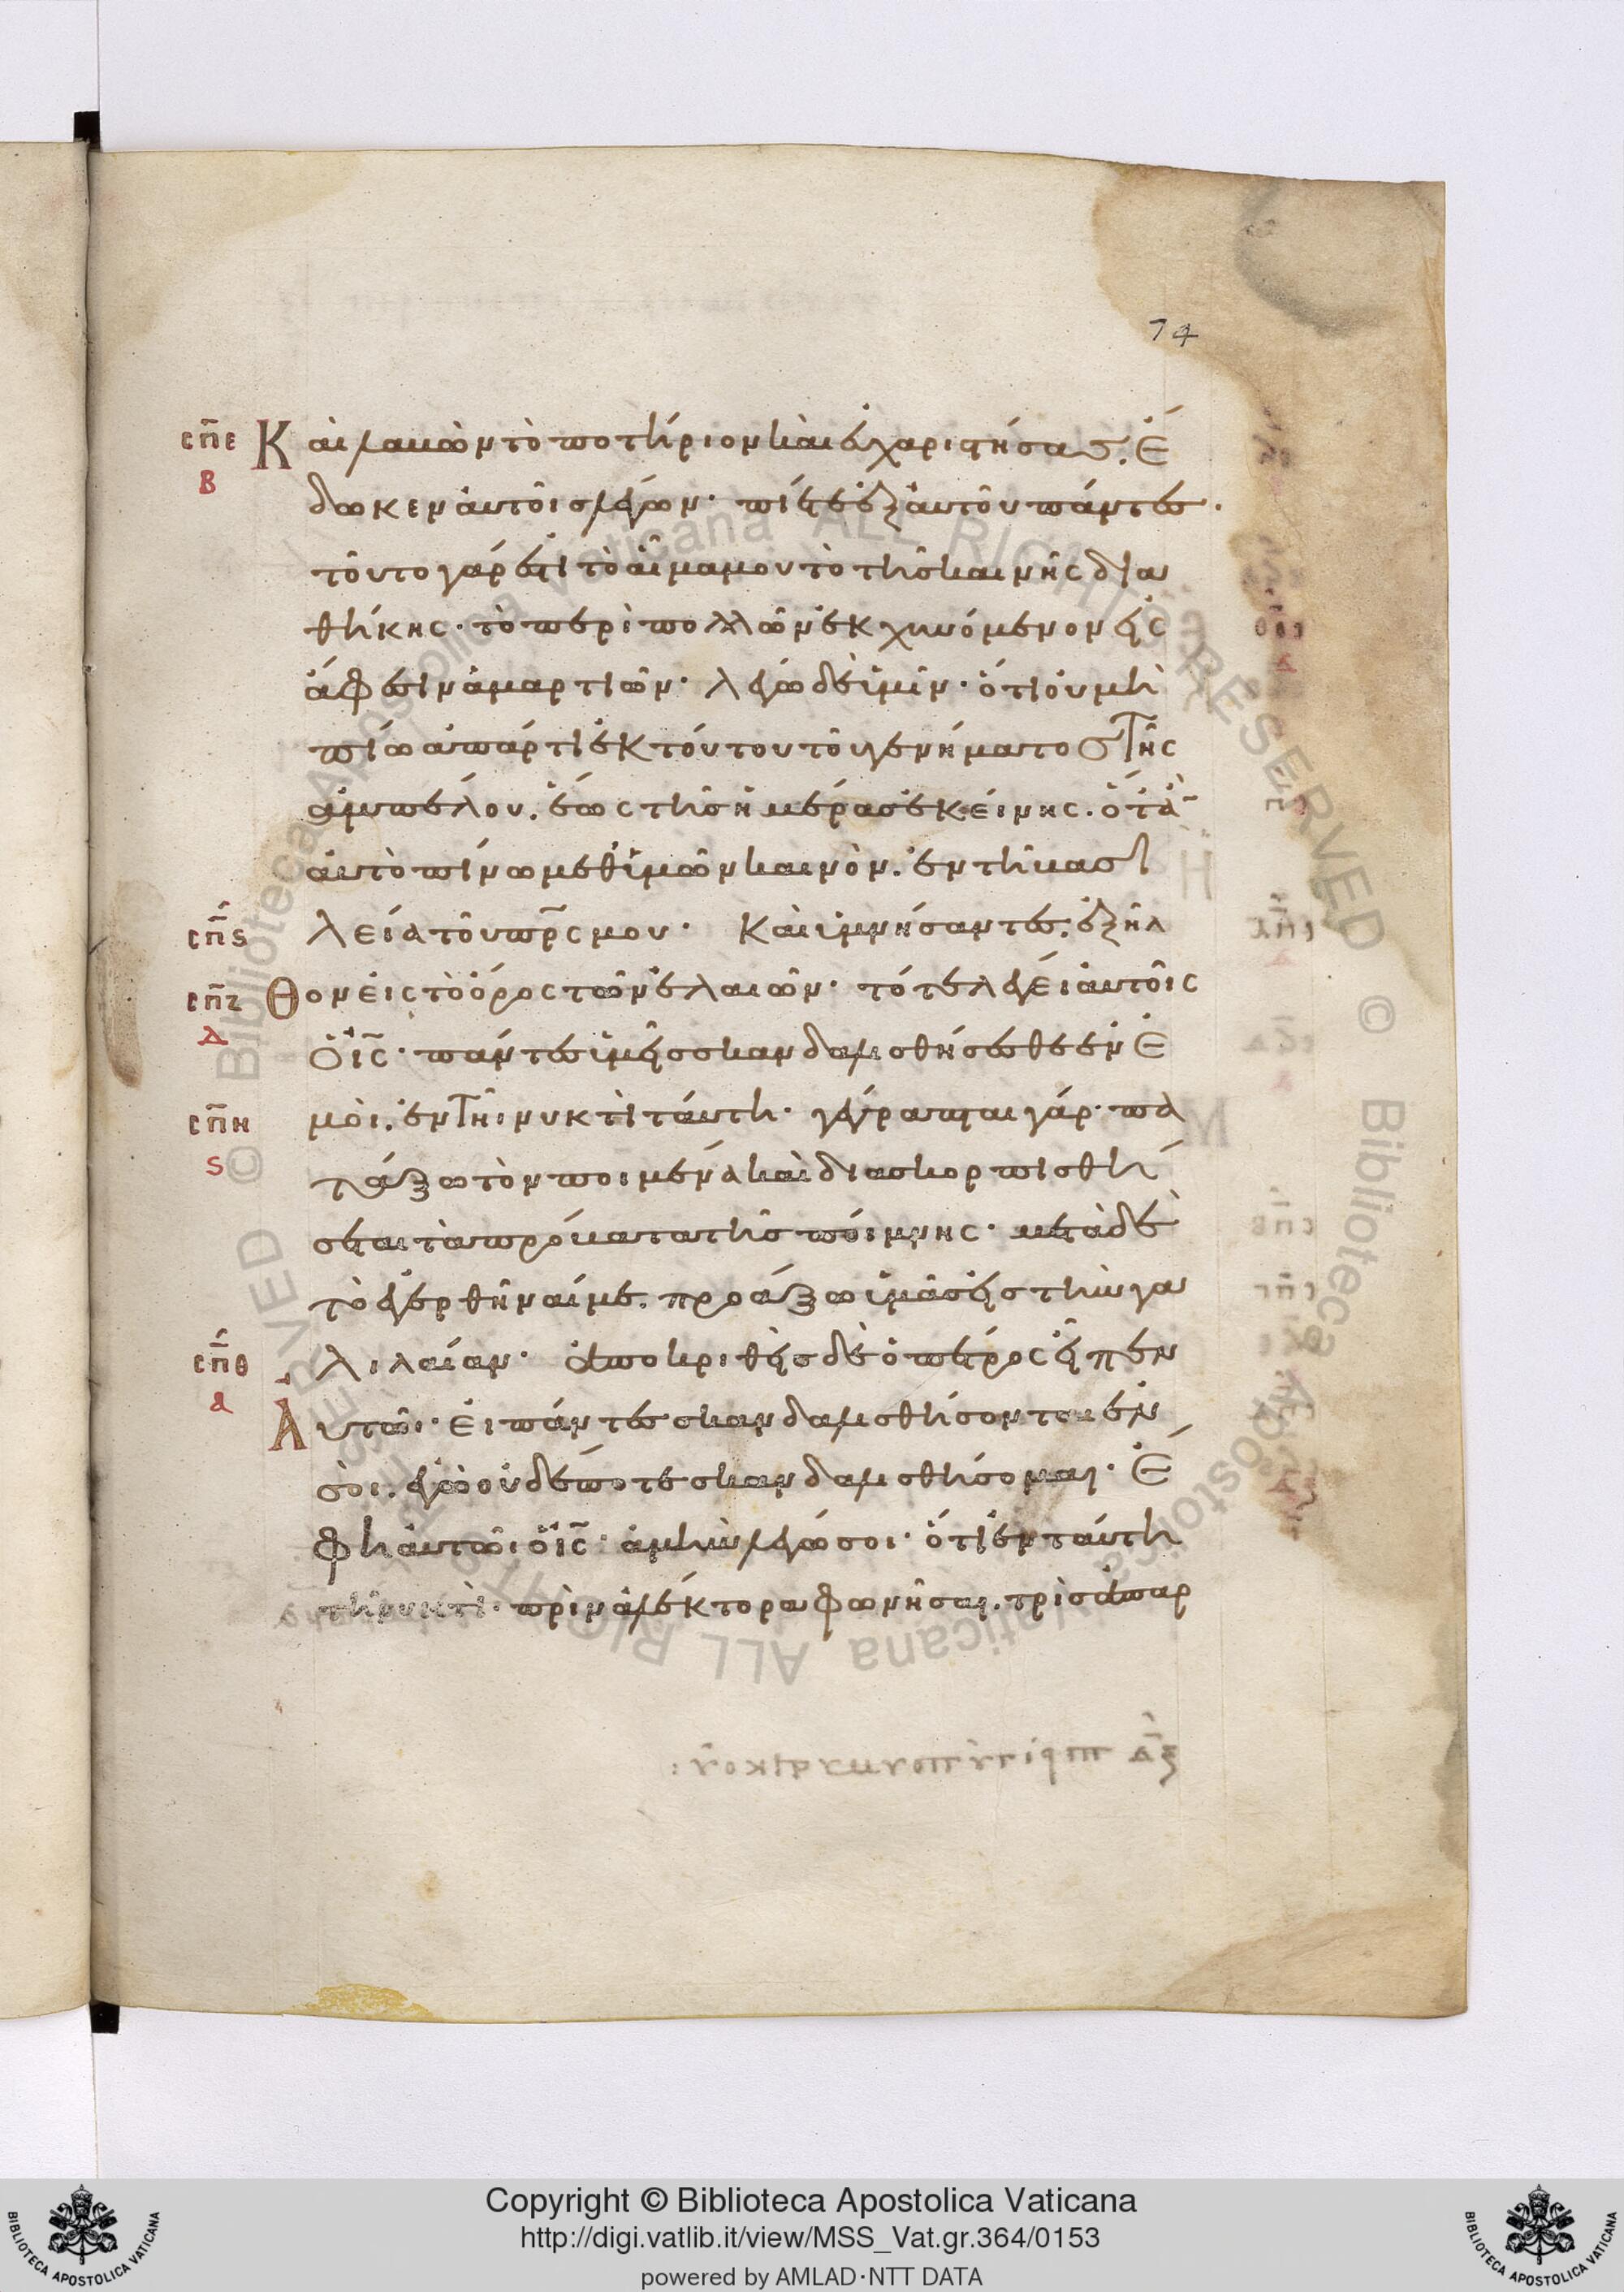 74
σπε Καὶ λαβὼν τὸ ποτήριον καὶ εὐχαριστήσας. ἔ
β δωκεν αὐτοῖς λέγων· πίετε ἐξ αὐτοῦ πάντες.
τοῦτο γάρ ἐστι τὸ αἷμα μου τὸ τῆς καινῆς δια
θήκης· τὸ περὶ πολλῶν ἐκχυνόμενον εἰς
ἄφεσιν ἁμαρτιῶν· λέγω δὲ ὑμῖν· ὅτι οὐ μὴ
πίω ἀπάρτι ἐκ τούτου τοῦ γενήματος τῆς
ἀμπέλου. ἕως τῆς ἡμέρας ἐκείνης. ὅτἂ
αὐτὸ πίνω μεθ' ὑμῶν καινὸν. ἐν τῆ βασι
σπς λεία τοῦ πρ̅ς μου· Καὶ ὑμνήσαντες. ἐξῆλ
σπζ θον εἰς τὸ ὄρος τῶν ἐλαιῶν· τότε λέγει αὐτοῖς
δ ὁ ι̅ς· πάντες ὑμεῖς σκανδαλισθήσεσθε ἐν ἐ
σπη μοὶ. ἐν τῆι νυκτὶ ταύτη· γέγραπται γάρ· πα
ς τάξω τὸν ποιμένα καὶ διασκορπισθή
σεται τὰ πρόβατα τῆς ποίμνης· μετὰ δὲ
τὸ ἐγερθῆναί με. προάξω ὑμᾶς εἰς τὴν γα
σπθ λιλαίαν· ἀποκριθεὶς δὲ ὁ πέτρος εἶπεν
α Αὐτῶι· εἰ πάντες σκανδαλισθήσονται ἐν
σοὶ. ἐγὼ οὐδέποτε σκανδαλισθήσομαι· ἔ
φη αὐτῶι ὁ ι̅ς· ἀμὴν λέγω σοι· ὅτι ἐν ταύτη
τῆ νυκτὶ· πρὶν ἀλέκτορα φωνῆσαι. τρὶς ἀπαρ
© Biblioteca Apostolica Vaticana ALL RIGHTS RESERVED
Copyright © Biblioteca Apostolica Vaticana
http://digi.vatlib.it/view/MSS_Vat.gr.364/0153
powered by AMLAD·NTT DATA
BIBLIOTECA APOSTOLICA VATICANA
BIBLIOTECA APOSTOLICA VATICANA